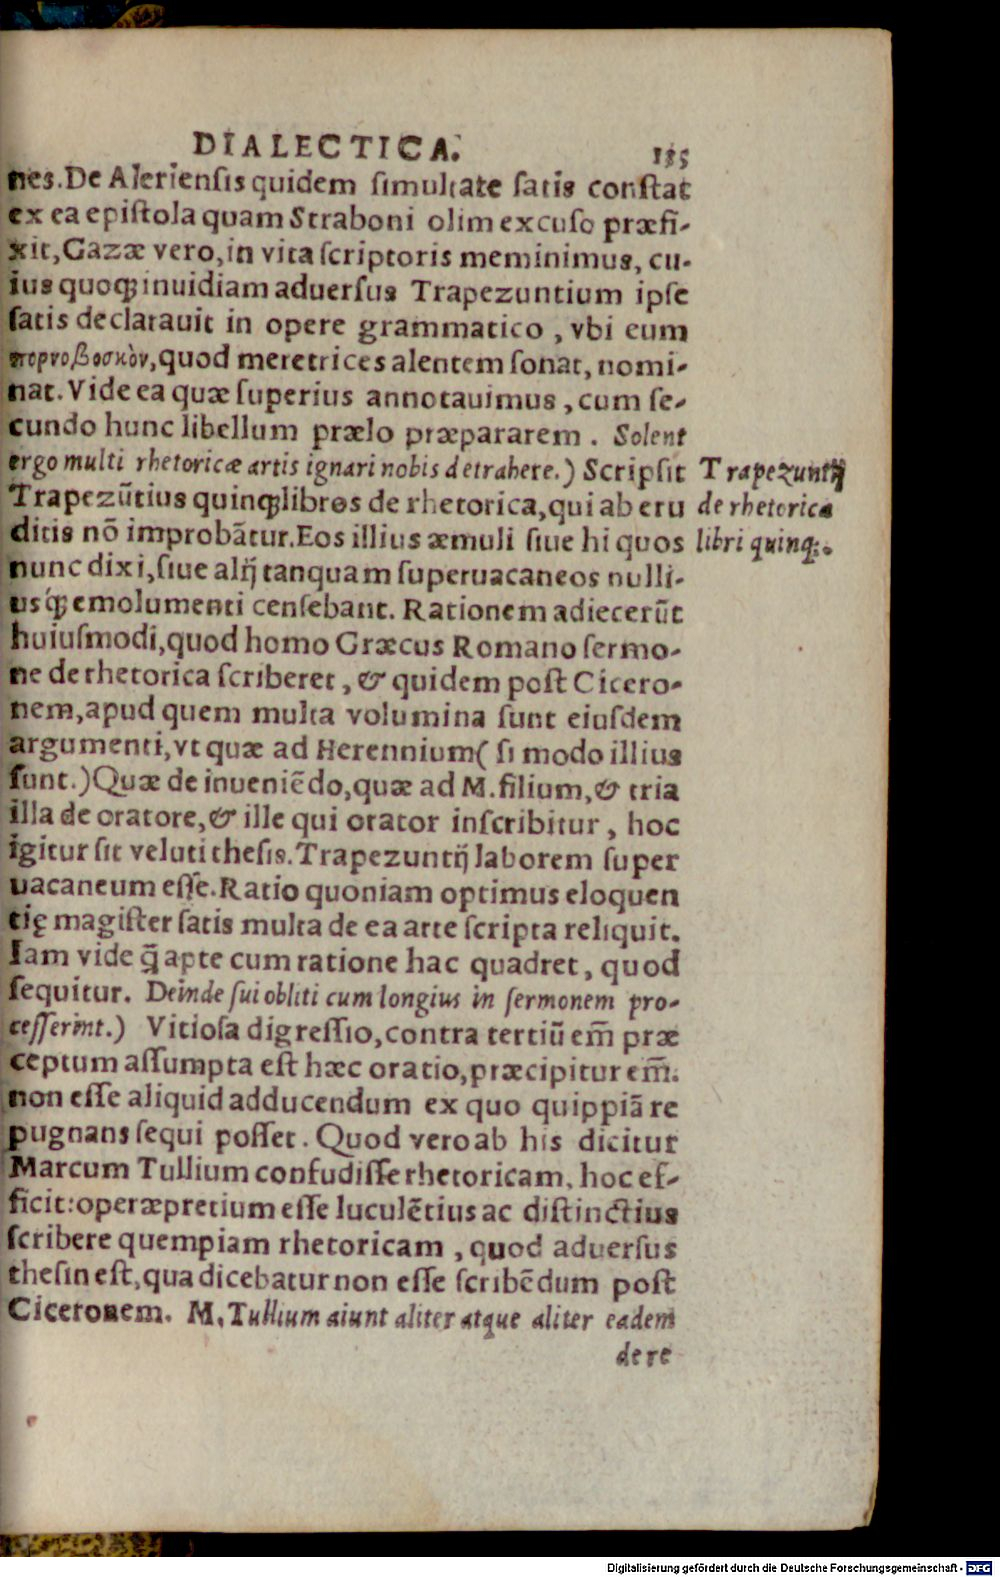 DIALECTICA. 135
nes. De Aleriensis quidem simultate satis constat
ex ea epistola quam Straboni olim excuso præfi-
xit, Gazæ vero, in vita scriptoris meminimus, cu-
ius quoq; inuidiam aduersus Trapezuntium ipse
satis declarauit in opere grammatico, vbi eum
πορνοβοσκὸν, quod meretrices alentem sonat, nomi-
nat. Vide ea quæ superius annotauimus, cum se-
cundo hunc libellum prælo præpararem. Solent
ergo multi rhetoricæ artis ignari nobis detrahere.) Scripsit
Trapezũtius quinq; libros de rhetorica, qui ab eru
ditis nõ improbãtur. Eos illius æmuli siue hi quos
nunc dixi, siue alij tanquam superuacaneos nulli-
usq́; emolumenti censebant. Rationem adiecerũt
huiusmodi, quod homo Græcus Romano sermo-
ne de rhetorica scriberet, & quidem post Cicero-
nem, apud quem multa volumina sunt eiusdem
argumenti, vt quæ ad Herennium (si modo illius
sunt.) Quæ de inueniẽdo, quæ ad M. filium, & tria
illa de oratore, & ille qui orator inscribitur, hoc
igitur sit veluti thesis. Trapezuntij laborem super
uacaneum esse. Ratio quoniam optimus eloquen
tię magister satis multa de ea arte scripta reliquit.
Iam vide q̃ apte cum ratione hac quadret, quod
sequitur. Deinde sui obliti cum longius in sermonem pro-
cesserint.) Vitiosa digressio, contra tertiũ em̃ præ
ceptum assumpta est hæc oratio, præcipitur em̃.
non esse aliquid adducendum ex quo quippiã re
pugnans sequi posset. Quod vero ab his dicitur
Marcum Tullium confudisse rhetoricam, hoc ef-
ficit: operæpretium esse luculẽtius ac distinctius
scribere quempiam rhetoricam, quod aduersus
thesin est, qua dicebatur non esse scribẽdum post
Ciceronem. M. Tullium aiunt aliter atque aliter eadem
de re
Trapezuntij
de rhetorica
libri quinq;.
Digitalisierung gefördert durch die Deutsche Forschungsgemeinschaft - DFG